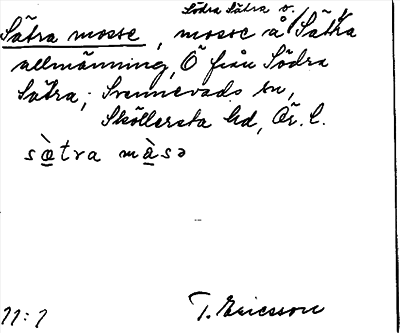 Södra Sätra o.
Sätra mosse, mosse å / Sätra
allmänning, Ö från Södra
Sätra; Svennevads sn,
Sköllersta hd, Ör. l.
sæ̀tra màsə
11:1 T. Ericsson